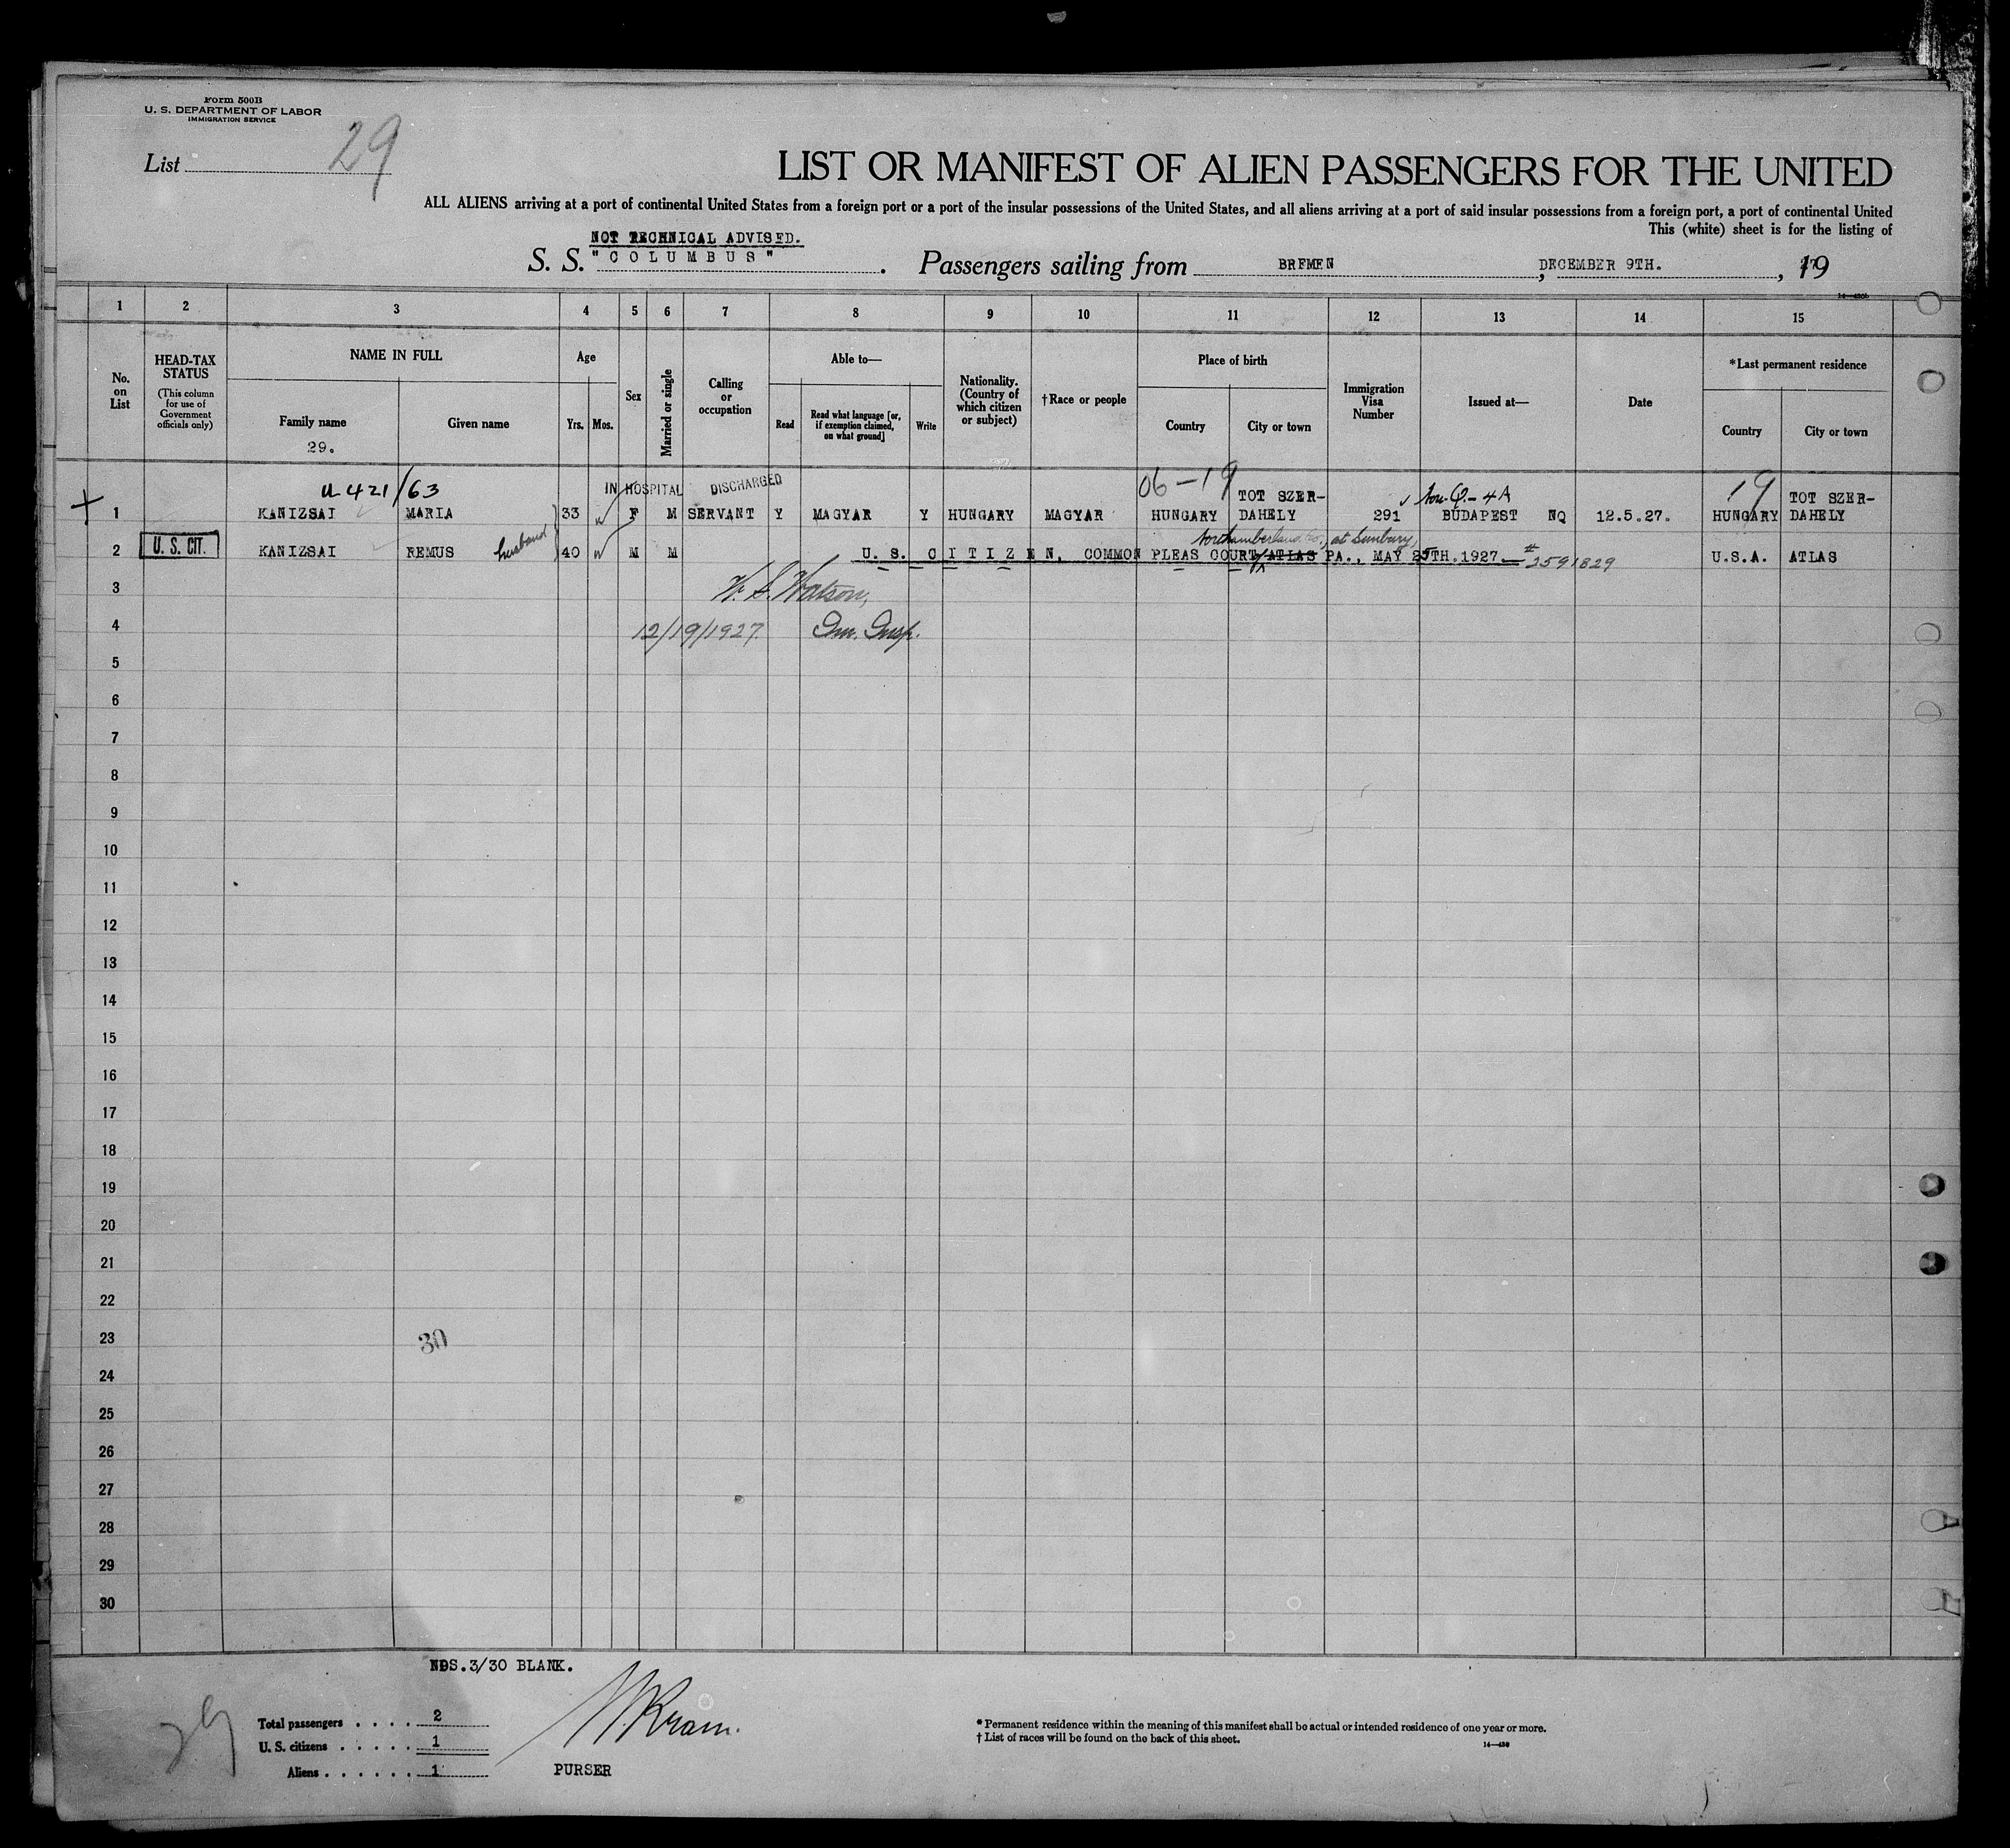 Form 500B
U. S. DEPARTMENT OF LABOR
IMMIGRATION SERVICE
List 29
LIST OR MANIFEST OF ALIEN PASSENGERS FOR THE UNITED
ALL ALIENS arriving at a port of continental United States from a foreign port or a port of the insular possessions of the United States, and all aliens arriving at a port of said insular possessions from a foreign port, a port of continental United
This (white) sheet is for the listing of
NOT TECHNICAL ADVISED.
S. S. "COLUMBUS". Passengers sailing from BREMEN, DECEMBER 9TH., 19
1 2 3 4 5 6 7 8 9 10 11 12 13 14 15
No. on List
HEAD-TAX STATUS
(This column for use of Government officials only)
NAME IN FULL
Family name
29.
Given name
Age
Yrs. Mos.
Sex
Married or single
Calling or occupation
Able to—
Read
Read what language [or, if exemption claimed, on what ground]
Write
Nationality. (Country of which citizen or subject)
†Race or people
Place of birth
Country
City or town
Immigration Visa Number
Issued at—
Date
*Last permanent residence
Country
City or town
421/63 IN HOSPITAL DISCHARGED 06-19 TOT SZER- Non-Q-4A 19 TOT SZER-
1 KANIZSAI MARIA 33 F M SERVANT Y MAGYAR Y HUNGARY MAGYAR HUNGARY DAHELY 291 BUDAPEST NQ 12.5.27. HUNGARY DAHELY
Northumberland Co., at Sunbury,
2 U. S. CIT. KANIZSAI REMUS husband 40 M M U. S. CITIZEN, COMMON PLEAS COURT, ATLAS PA., MAY 25TH.1927 - # 2591829 U.S.A. ATLAS
3
W. S. Watson,
4 12/19/1927. Im. Insp.
5
6
7
8
9
10
11
12
13
14
15
16
17
18
19
20
21
22
23 30
24
25
26
27
28
29
30
NOS.3/30 BLANK.
29
Total passengers . . . . 2
U. S. citizens . . . . . 1
Aliens . . . . . . 1
PURSER
* Permanent residence within the meaning of this manifest shall be actual or intended residence of one year or more.
† List of races will be found on the back of this sheet.